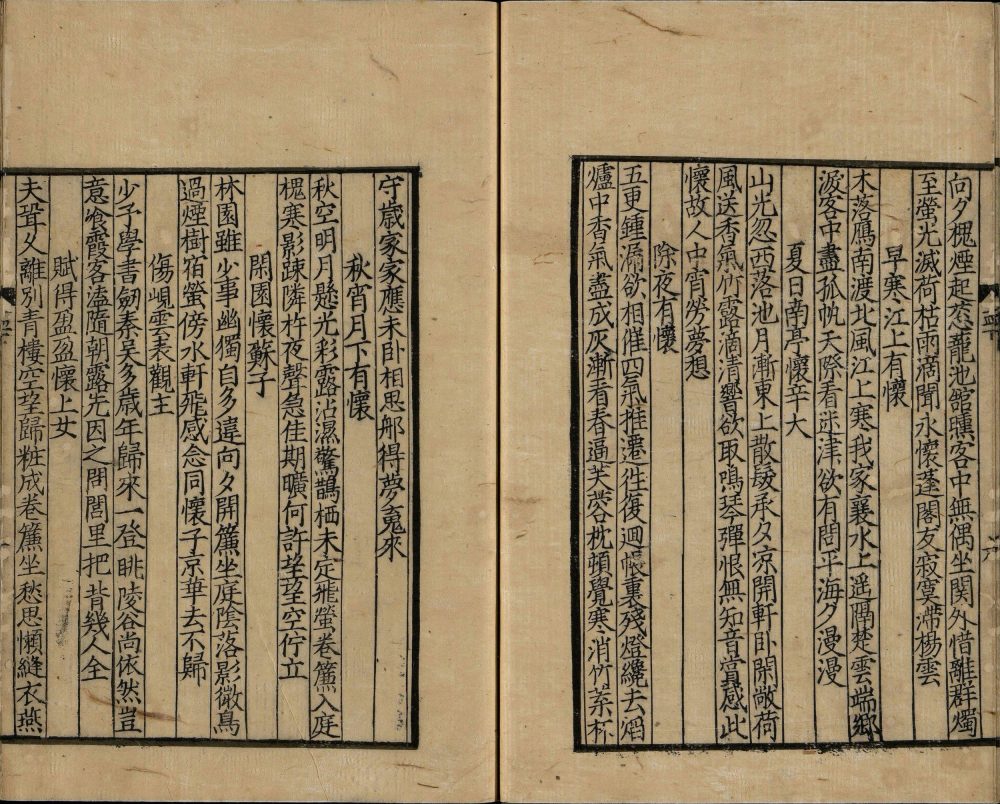 向夕槐煙起葱蘢池舘曛客中無偶坐関外惜離群燭
至螢光滅荷枯雨滴聞永懷蓬閣友寂寞滯楊雲
早寒江上有懷
木落鴈南渡北風江上寒我家襄水上遥隔楚雲端鄉
淚客中盡孤帆天際看迷津欲有問平海夕漫漫
夏日南亭懷辛大
山光忽西落池月漸東上散髮承夕凉開軒卧閑敞荷
風送香氣竹露滴清響欲取鳴琴彈恨無知音賞感此
懷故人中宵勞夢想
除夜有懷
五更鍾漏欲相催四氣推遷往復迴帳裏殘燈纔去焰
爐中香氣盡成灰漸看春逼芙蓉枕頓覺寒消竹葉杯
守歳家家應未卧相思那得夢魂來
秋宵月下有懷
秋空明月懸光彩露沾濕驚鵲栖未定飛螢卷簾入庭
槐寒影踈隣杵夜聲急佳期曠何許望望空佇立
閑園懷蘇子
林園雖少事幽獨自多違向夕開簾坐庭陰落影微鳥
過煙樹宿螢傍水軒飛感念同懷子京華去不歸
傷峴雲表觀主
少予學書劒秦吳多歳年歸來一登眺陵谷尚依然豈
意飡霞客溘隨朝露先因之問閭里把背幾人全
賦得盈盈懷上女
夫壻久離别青樓空望歸粧成卷簾坐愁思懶縫衣燕